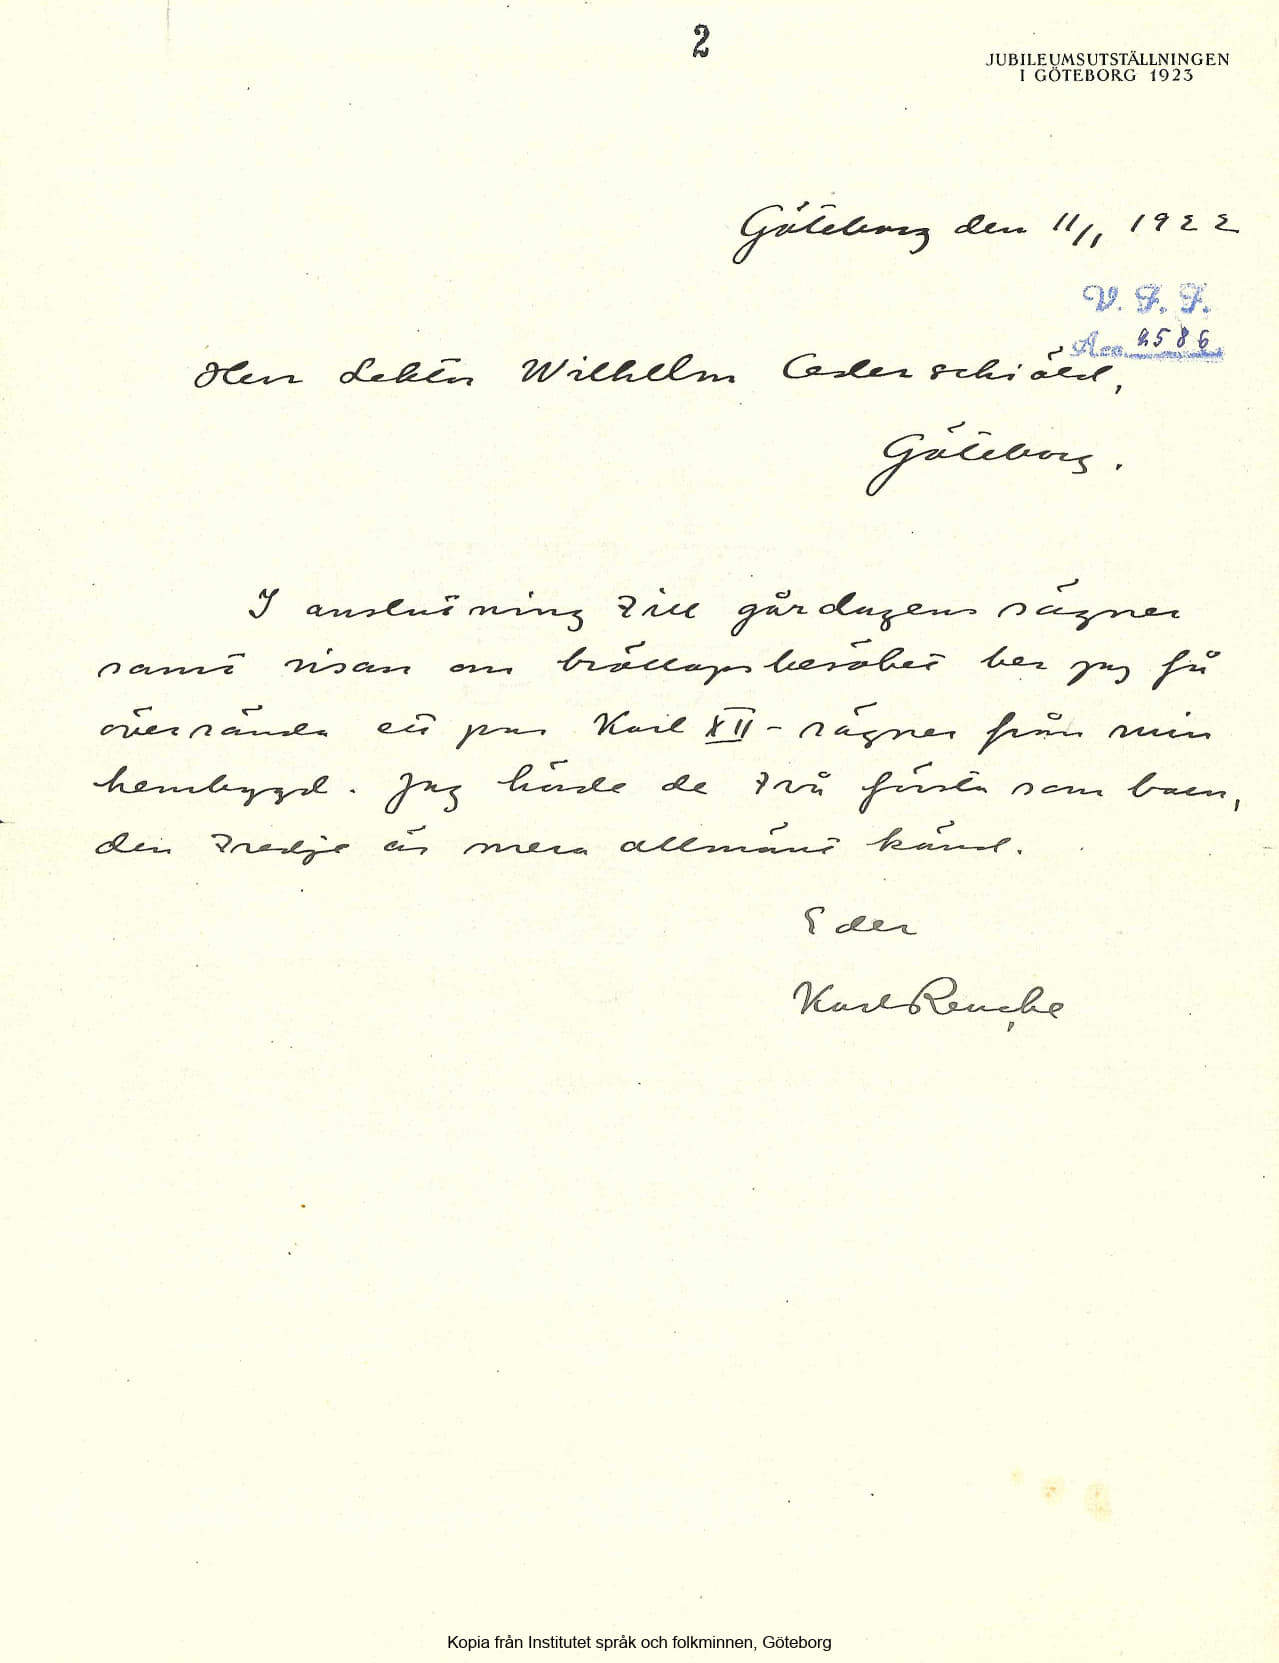 2
JUBILEUMSUTSTÄLLNINGEN
I GÖTEBORG 1923
Göteborg den 11/1 1922
V. F. F.
Acc. 2586
Herr Lektor Wilhelm Cederschiöld,
Göteborg.
I anslutning till gårdagens sägner
samt visan om bröllopsbesöket ber jag få
översända ett par Karl XII-sägner från min
hembygd. Jag hörde de två första som barn,
den tredje är mera allmänt känd.
Eder
Karl
Kopia från Institutet språk och folkminnen, Göteborg